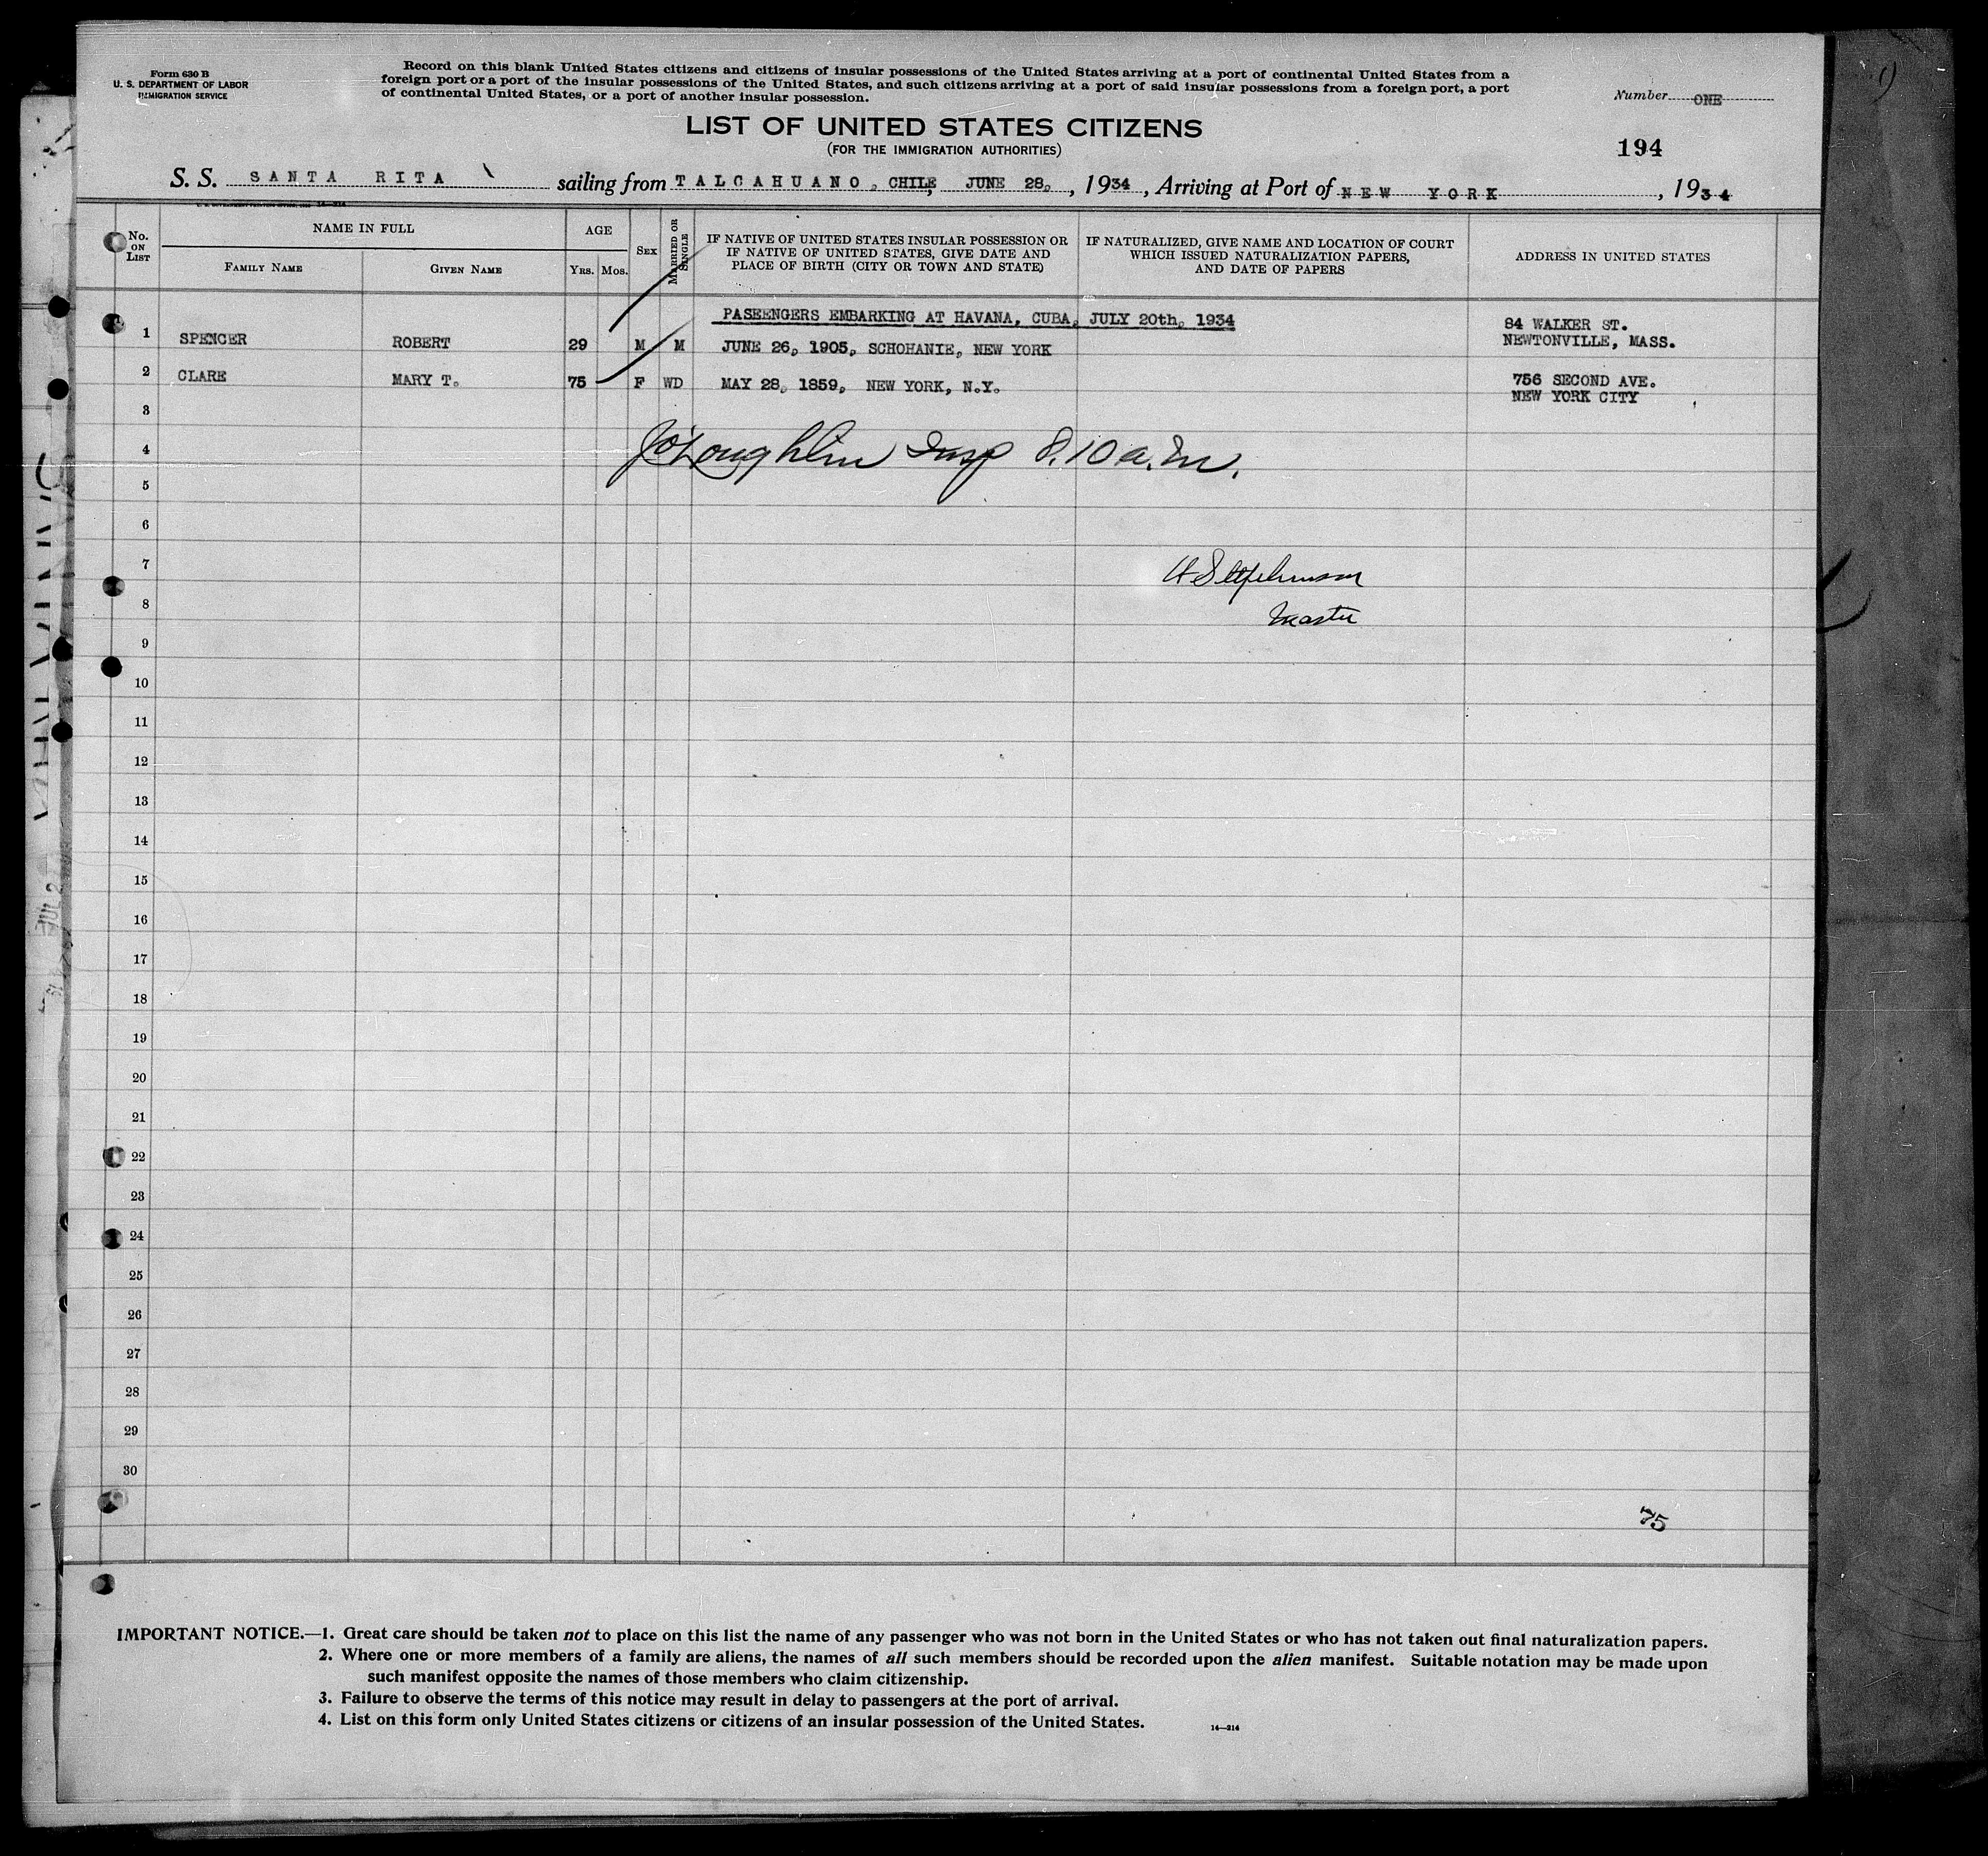 Form 630 B
U. S. DEPARTMENT OF LABOR
IMMIGRATION SERVICE
Record on this blank United States citizens and citizens of insular possessions of the United States arriving at a port of continental United States from a
foreign port or a port of the insular possessions of the United States, and such citizens arriving at a port of said insular possessions from a foreign port, a port
of continental United States, or a port of another insular possession.
Number ONE
LIST OF UNITED STATES CITIZENS
(FOR THE IMMIGRATION AUTHORITIES)
194
S. S. SANTA RITA sailing from TALCAHUANO, CHILE, JUNE 28, , 1934 , Arriving at Port of NEW YORK , 1934
No. ON LIST
NAME IN FULL
FAMILY NAME
GIVEN NAME
AGE
YRS. MOS.
SEX
MARRIED OR SINGLE
IF NATIVE OF UNITED STATES INSULAR POSSESSION OR
IF NATIVE OF UNITED STATES, GIVE DATE AND
PLACE OF BIRTH (CITY OR TOWN AND STATE)
IF NATURALIZED, GIVE NAME AND LOCATION OF COURT
WHICH ISSUED NATURALIZATION PAPERS,
AND DATE OF PAPERS
ADDRESS IN UNITED STATES
PASEENGERS EMBARKING AT HAVANA, CUBA, JULY 20th, 1934
1 SPENCER ROBERT 29 M M JUNE 26, 1905, SCHOHANIE, NEW YORK 84 WALKER ST.
NEWTONVILLE, MASS.
2 CLARE MARY T. 75 F WD MAY 28, 1859, NEW YORK, N.Y. 756 SECOND AVE.
NEW YORK CITY
3
4 Jo'Loughlin Insp 8.10 a.m.
5
6
7
8 Master
9
10
11
12
13
14
15
16
17
18
19
20
21
22
23
24
25
26
27
28
29
30
75
IMPORTANT NOTICE.—1. Great care should be taken not to place on this list the name of any passenger who was not born in the United States or who has not taken out final naturalization papers.
2. Where one or more members of a family are aliens, the names of all such members should be recorded upon the alien manifest. Suitable notation may be made upon
such manifest opposite the names of those members who claim citizenship.
3. Failure to observe the terms of this notice may result in delay to passengers at the port of arrival.
4. List on this form only United States citizens or citizens of an insular possession of the United States.
14—214